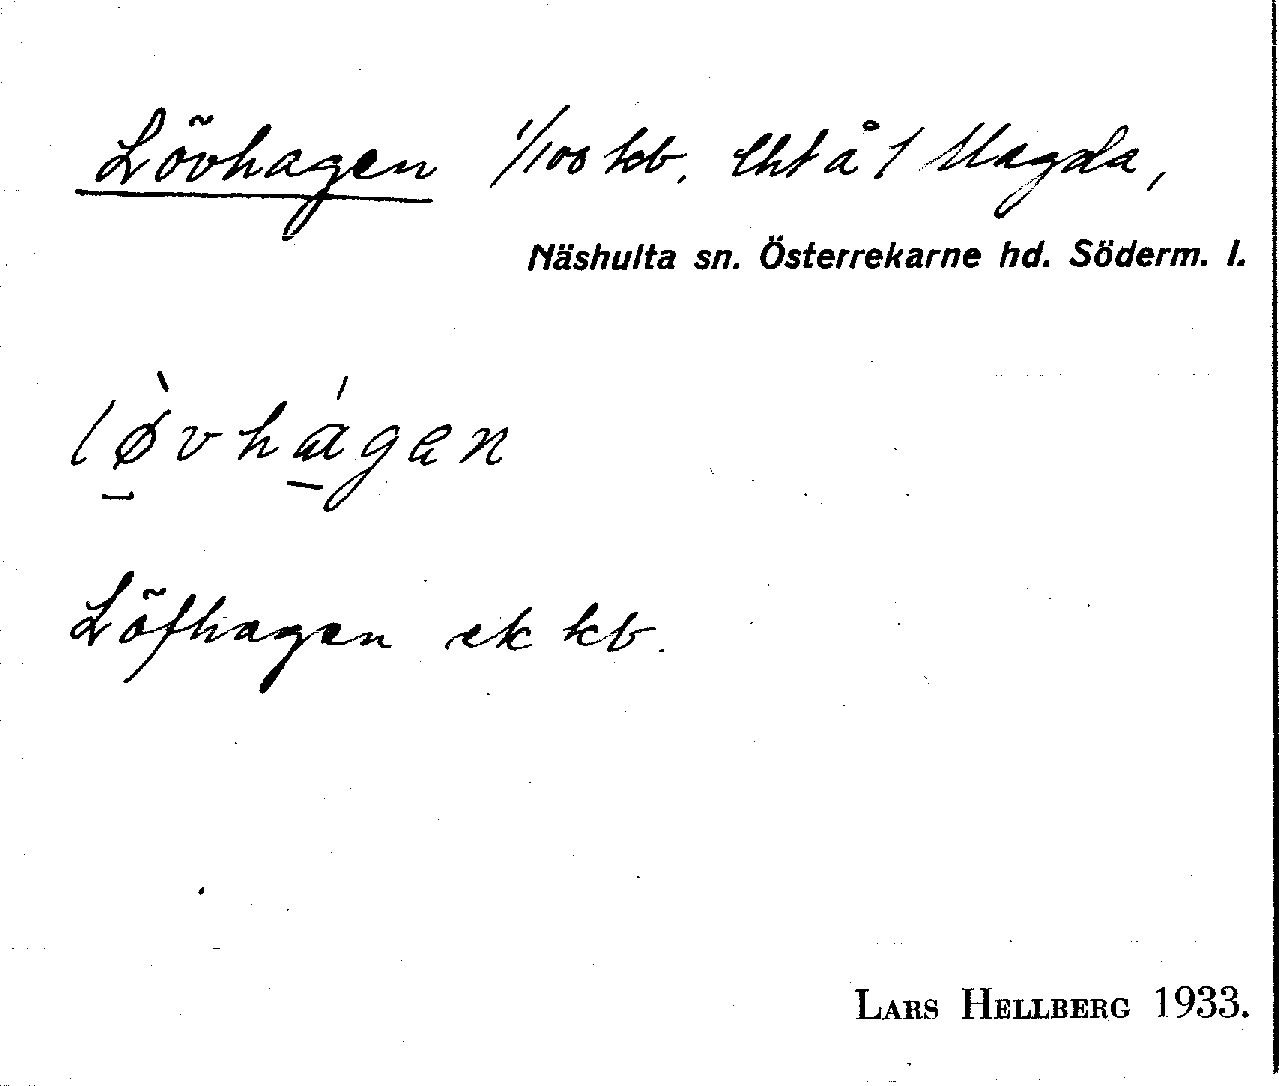 Lövhagen 1/100 kb. lht å 1 Magda,
Näshulta sn. Österrekarne hd. Söderm. l.
lø̀vhágen
Löfhagen ek kb.
LARS HELLBERG 1933.